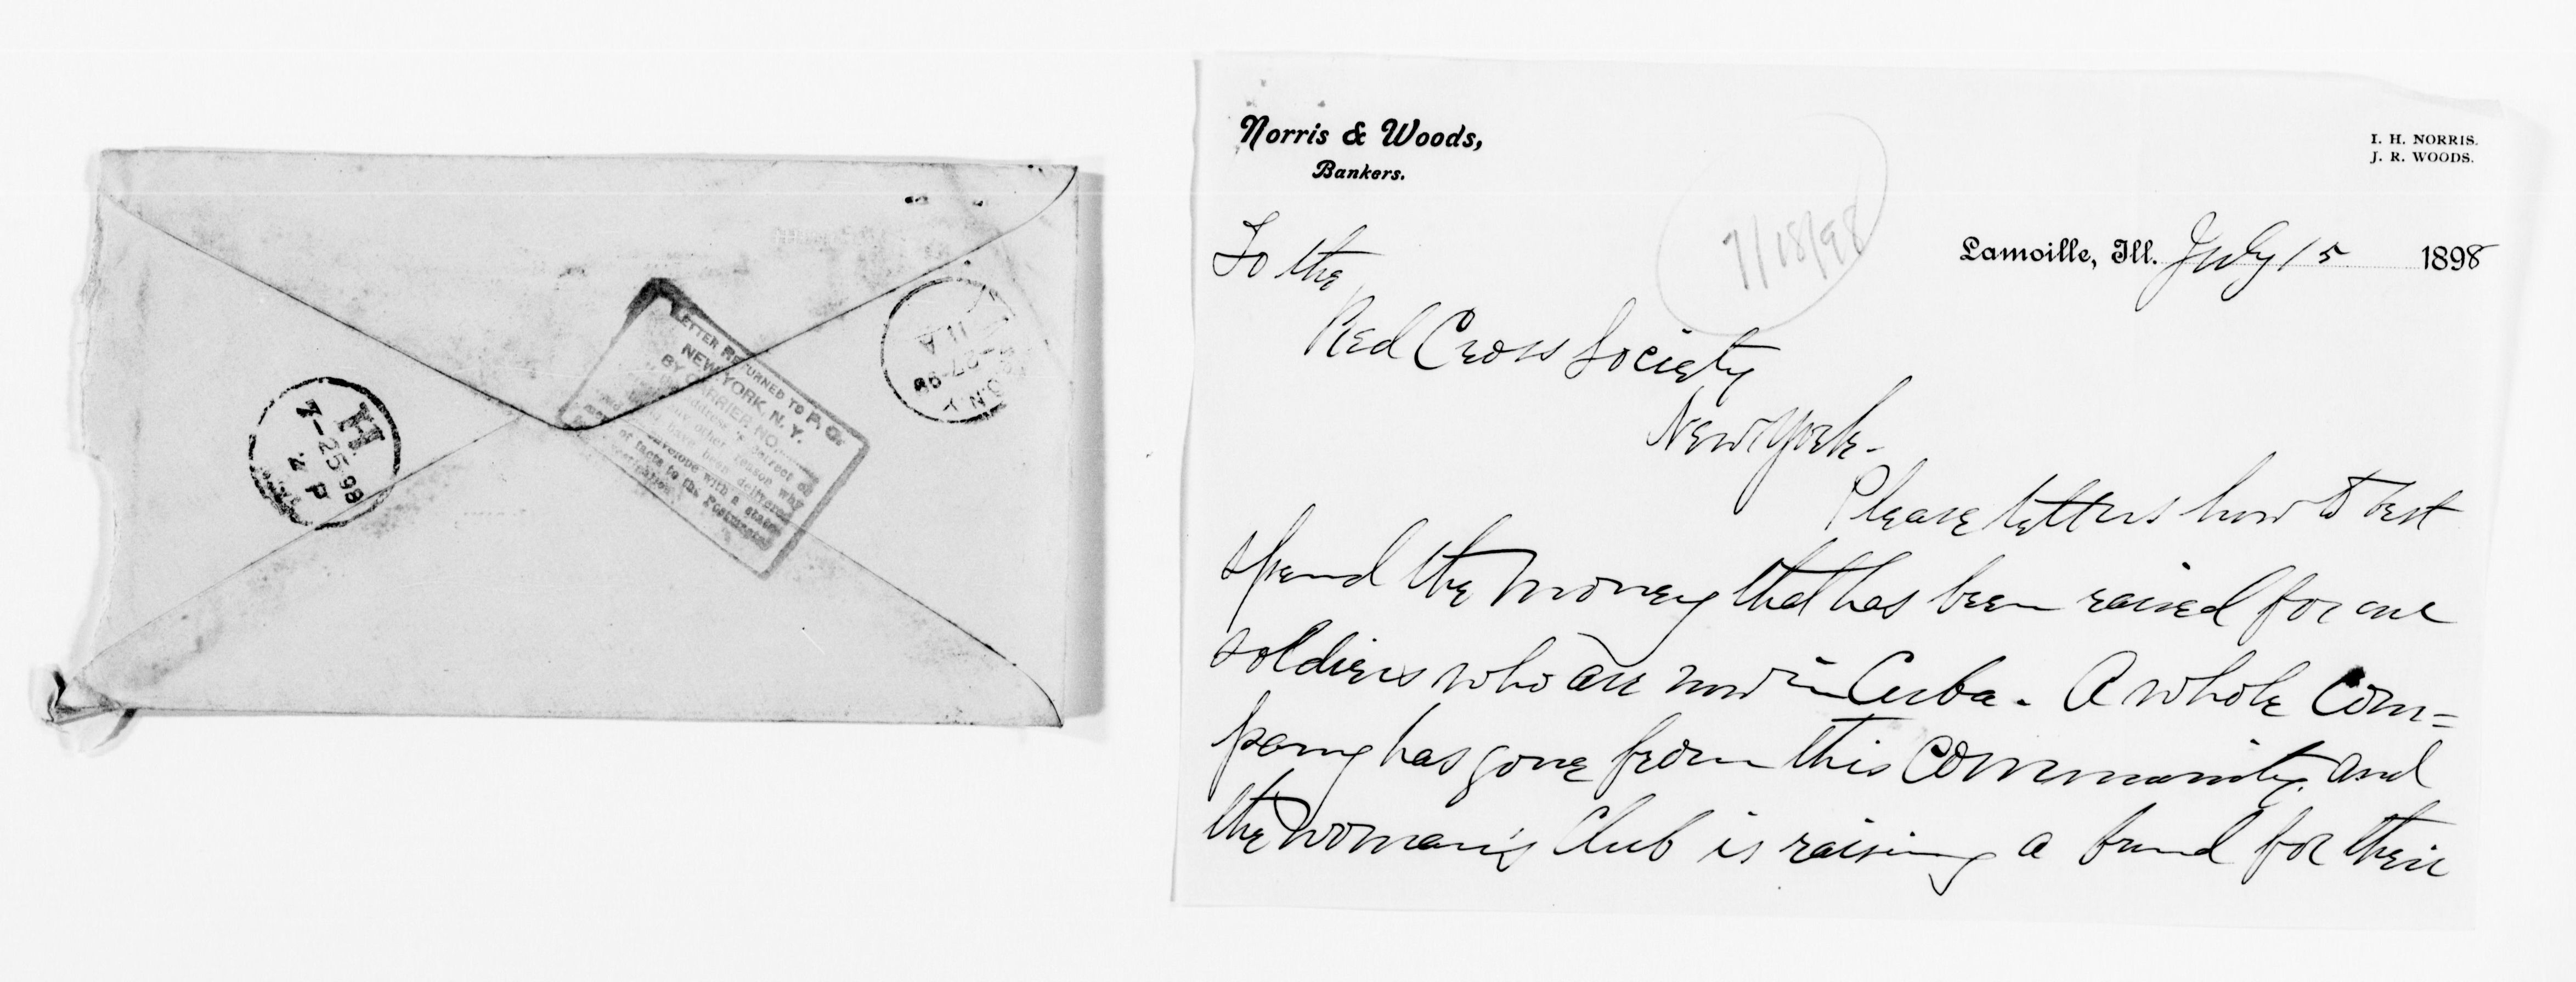 H
7-25-98
2 P
LETTER RETURNED TO P. O.
NEW YORK, N. Y.
BY CARRIER NO.
address is correct or
other reason why
have been delivered
envelope with a state
of facts to the Postmaster
11 A
-27-98
N.Y.
Norris & Woods,
Bankers.
I. H. NORRIS.
J. R. WOODS.
7/18/98
Lamoille, Ill. July 15 1898
To the
Red Cross Society
New York -
Please tell us how to best
spend the money that has been raised for our
soldiers who are now in Cuba - A whole Com=
pany has gone from this Community, and
the Woman's Club is raising a fund for their